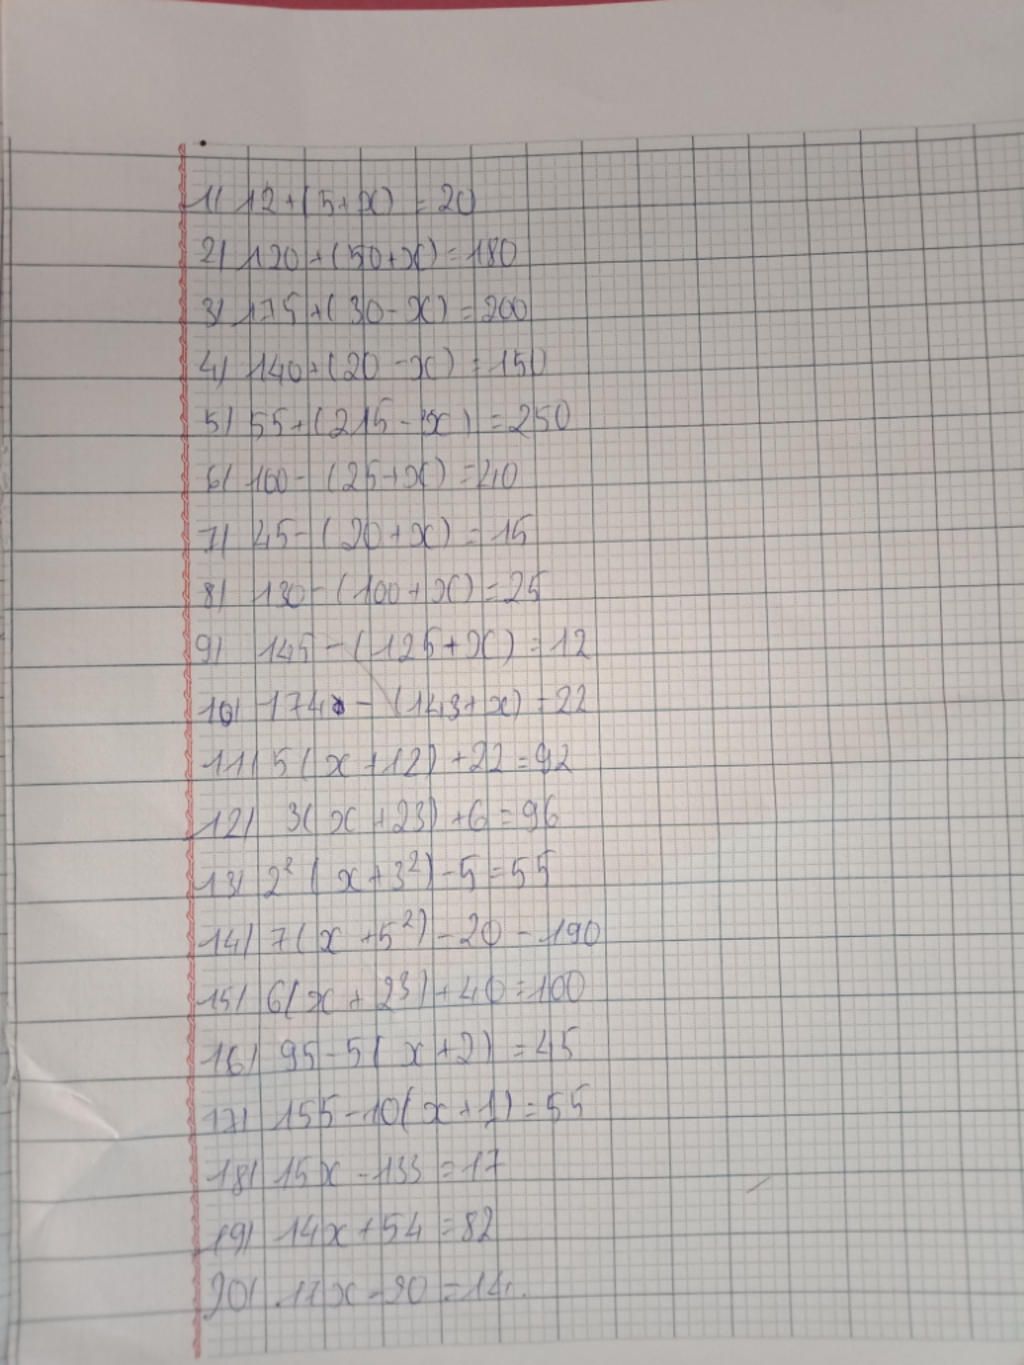 1) 12+(5+x) = 20
2) 120+(50+x)=180
3) 175+(30-x)=200
4) 140+(20-x)=150
5) 55+(215-x)=250
6) 100-(25+x)=40
7) 45-(20+x)=15
8) 130-(100+x)=25
9) 145-(125+x)=12
10) 174-(143+x)=22
11) 5(x+12)+22=92
12) 3(x+23)+6=96
13) 2²(x+3²)-5=55
14) 7(x+5²)-20-190
15) 6(x+2³)+40=100
16) 95-5(x+2)=45
17) 155-10(x+1)=55
18) 15x-133=17
19) 14x+54=82
20) 17x-20=14.